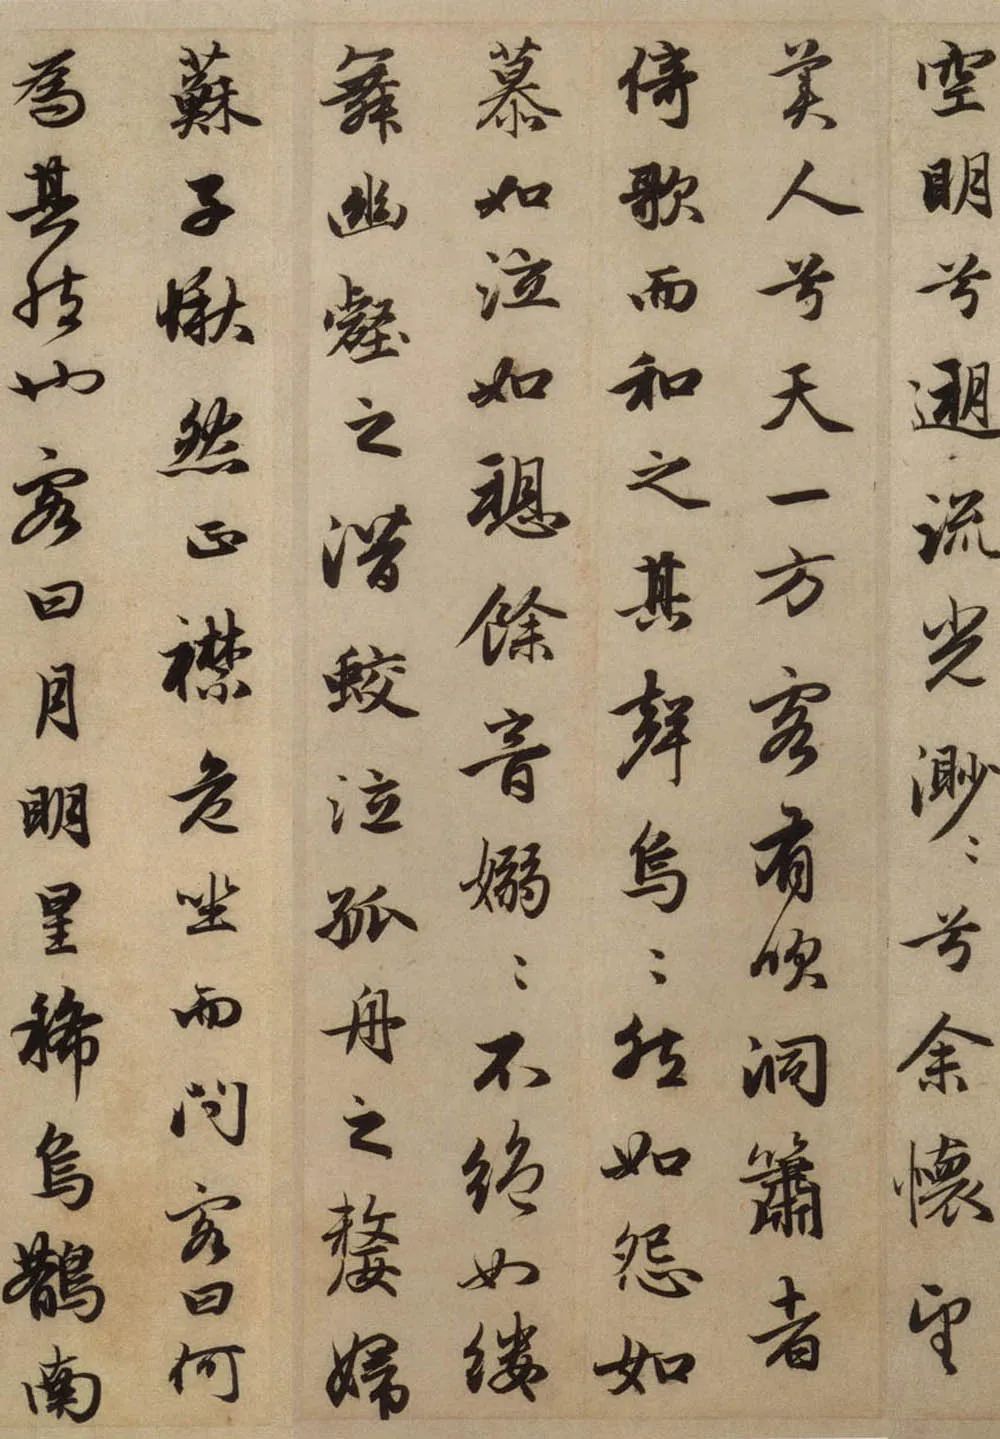 空明兮遡流光渺〻兮余懷望
美人兮天一方客有吹洞簫者
倚歌而和之其聲烏〻然如怨如
慕如泣如愬餘音嫋〻不絕如縷
舞幽壑之潛蛟泣孤舟之嫠婦
蘇子愀然正襟危坐而問客曰何
為其然也客曰月明星稀烏鵲南